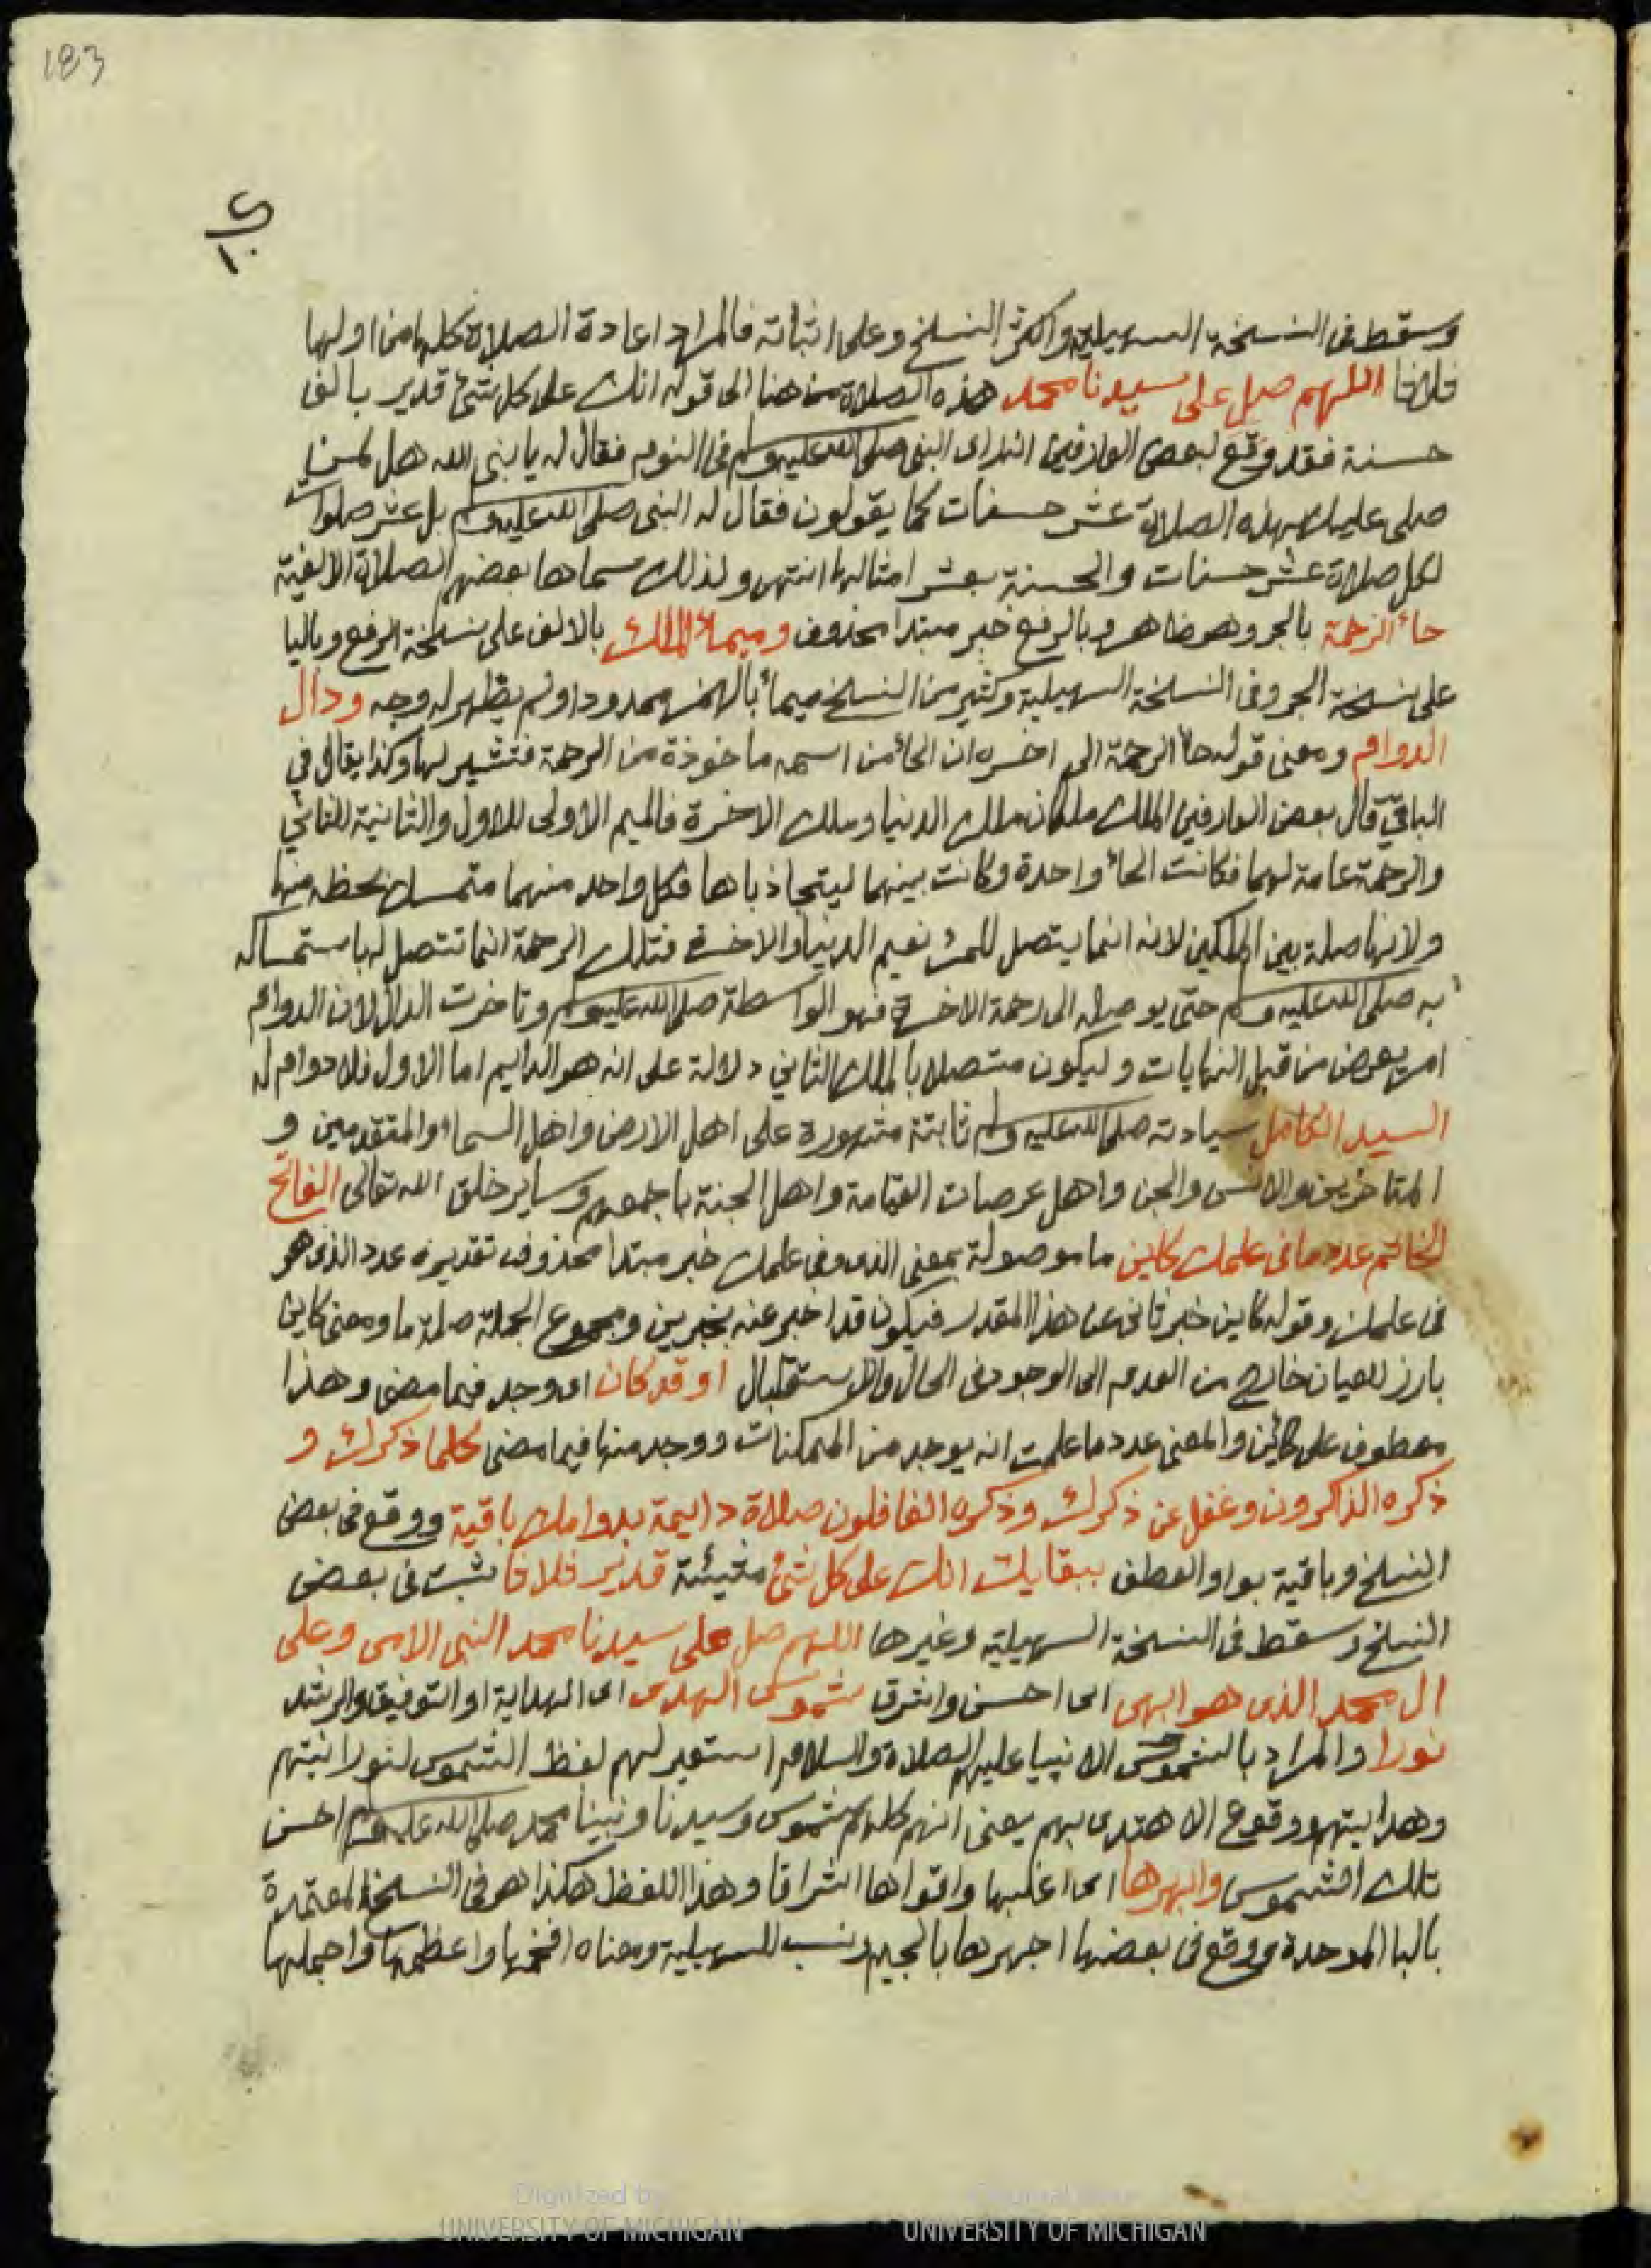 183
وسقط فى النسخة السهيلية واكثر النسخ وعلى اثباته فالمراد اعادة الصلاة كلها من اولها
ثلاثا اللهم صل على سيدنا محمد هذه الصلاة من هنا الى قوله انك على كل شئ قدير بالف
حسنة فقد وقع لبعض العارفين انه راى النبى صلى الله عليه وسلم فى النوم فقال له يا نبى الله هل لمن
صلى عليك بهذه الصلاة عشر حسنات كما يقولون فقال له النبى صلى الله عليه وسلم بل عشر صلوات
لكل صلاة عشر حسنات والحسنة بعشر امثالها انتهى ولذلك سماها بعضهم الصلاة الالفية
حاء الرحمة بالجر وهو ظاهر وبالرفع خبر مبتدا محذوف وميما الملك بالالف على نسخة الرفع وباليا
على نسخة الجر وفى النسخة السهيلية وكثير من النسخ ميماء بالهمز ممدودا ولم يظهر له وجه ودال
الدوام ومعنى قوله حاء الرحمة الى اخره ان الحاء من اسمه ماخوذة من الرحمة فتشير لها وكذا يقال فى
الباقى قال بعض العارفين الملك ملكان ملك الدنيا وملك الاخرة فالميم الاولى للاول والثانية للثاني
والرحمة عامة لهما فكانت الحاء واحدة وكانت بينهما ليتجاذباها فكل واحد منهما متمسك بحظه منها
ولانها صلة بين الملكين لانه انما يتصل للمرء نعيم الدنيا والاخرة فتلك الرحمة انما تتصل له باستمساكه
به صلى الله عليه وسلم حتى يوصله الى رحمة الاخرة فهو الواسطة صلى الله عليه وسلم وتاخرت الدال لان الدوام
امر يعرض من قبل النهايات وليكون متصلا بالملك الثاني دلالة على انه هو الدايم اما الاول فلا دوام له
السيد الكامل سيادته صلى الله عليه وسلم ثابتة مشهورة على اهل الارض واهل السماء والمتقدمين و
المتاخرين والانس والجن واهل عرصات القيامة واهل الجنة باجمعهم وساير خلق الله تعالى الفاتح
الخاتم عدد ما فى علمك كاين ما موصولة بمعنى الذى وفى علمك خبر مبتدا محذوف تقديره عدد الذى هو
فى علمك وقوله كاين خبر ثانى عن هذا المقدر فيكون قد اخبر عنه بخبرين ومجموع الجملة صلة ما ومعنى كاين
بارز للعيان خارج من العدم الى الوجود فى الحال والاستقبال او قد كان اى وجد فيما مضى وهذا
معطوف على كائن والمعنى عدد ما علمت انه يوجد من الممكنات ووجد منها فيما مضى كلما ذكرك و
ذكره الذاكرون وغفل عن ذكرك وذكره الغافلون صلاة دايمة بدوامك باقية ووقع فى بعض
النسخ وباقية بواو العطف ببقايك انك على كل شئ مشيئة قدير ثلاثا ثبت فى بعض
النسخ وسقط فى النسخة السهيلية وغيرها اللهم صل على سيدنا محمد النبى الامى وعلى
ال محمد الذى هو ابهى اى احسن واشرق شموس الهدى اى الهداية او التوفيق والرشد
نورا والمراد بالشموس الانبيا عليهم الصلاة والسلام استعير لهم لفظ الشموس لنورانيتهم
وهدايتهم ووقوع الاهتدى بهم يعنى انهم كلهم شموس وسيدنا ونبينا محمد صلى الله عليه وسلم احسن
تلك الشموس وابهرها اى اغلبها واقواها اشراقا وهذا اللفظ هكذا هو فى النسخ المعتمدة
بالبا الموحدة ووقع فى بعضها اجهرها بالجيم ونسب للسهيلية ومعناه افخمها واعظمها واجملها
Digitized by
UNIVERSITY OF MICHIGAN
Original from
UNIVERSITY OF MICHIGAN